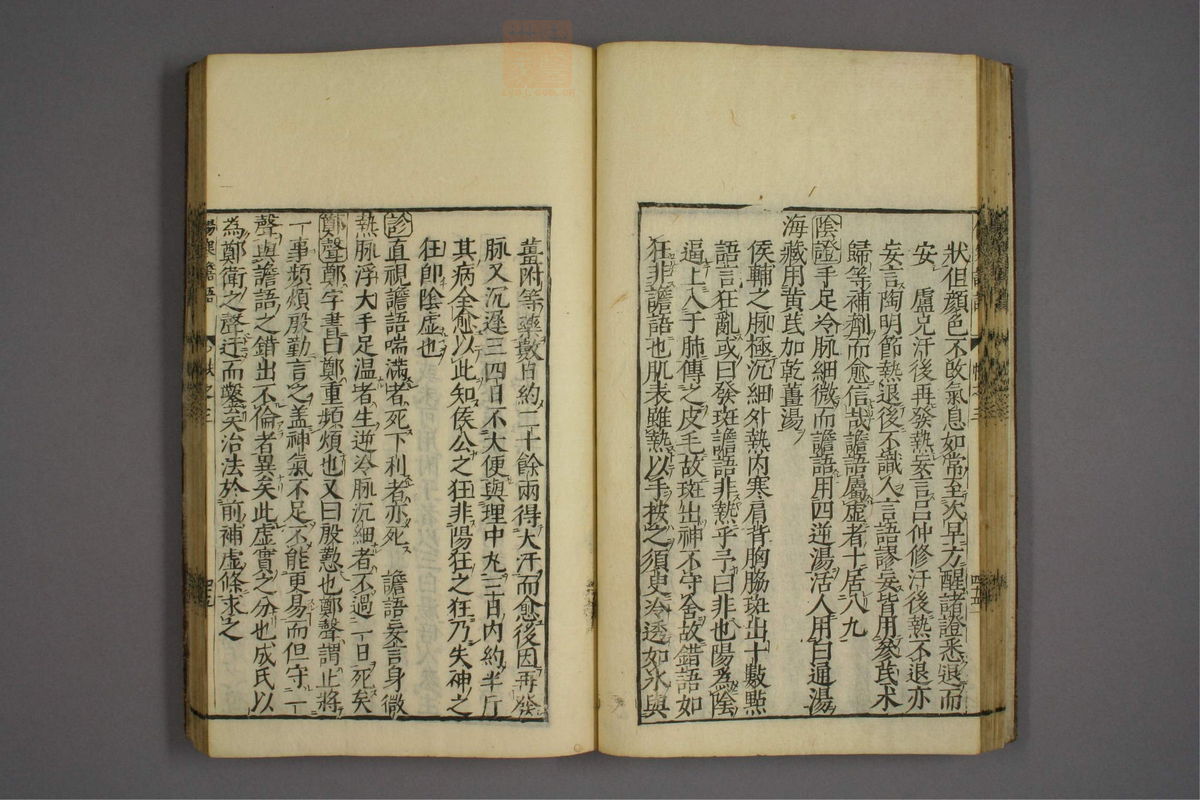 狀但顔色不改氣息如常至次早方醒諸證悉退而
安　盧兄汗後再發熱妄言吕仲修汗後熱不退亦
妄言陶明節熱退後不識人言語謬妄皆用參芪术
歸等補劑而愈信哉譫語屬虚者十居八九
陰證手足冷脉細微而譫語用四逆湯活人用白通湯
海藏用黄芪加乾薑湯
侯輔之脉極沉細外熱内寒肩背胸脇斑出十數點
語言狂亂或曰發斑譫語非熱乎予曰非也陽爲陰
逼上入于肺傳之皮毛故斑出神不守舍故錯語如
狂非譫語也肌表雖熱以手按之須臾冷透如氷與
薑附等藥數日約二十餘兩得大汗而愈後因再發
脉又沉遲三四日不大便與理中丸三日内約半斤
其病全愈以此知侯公之狂非陽狂之狂乃失神之
狂卽陰虚也
診直視譫語喘滿者死下利者亦死　譫語妄言身微
熱脉浮大手足温者生逆冷脉沉細者不過一日死矣
鄭聲鄭字書曰鄭重頻煩也又曰殷懃也鄭聲謂止將
一事頻煩殷勤言之盖神氣不足不能更易而但守一
聲與譫語之錯出不倫者異矣此虚實之分也成氏以
為鄭衛之聲迂而鑿矣治法於前補虚條求之
傷寒譫語